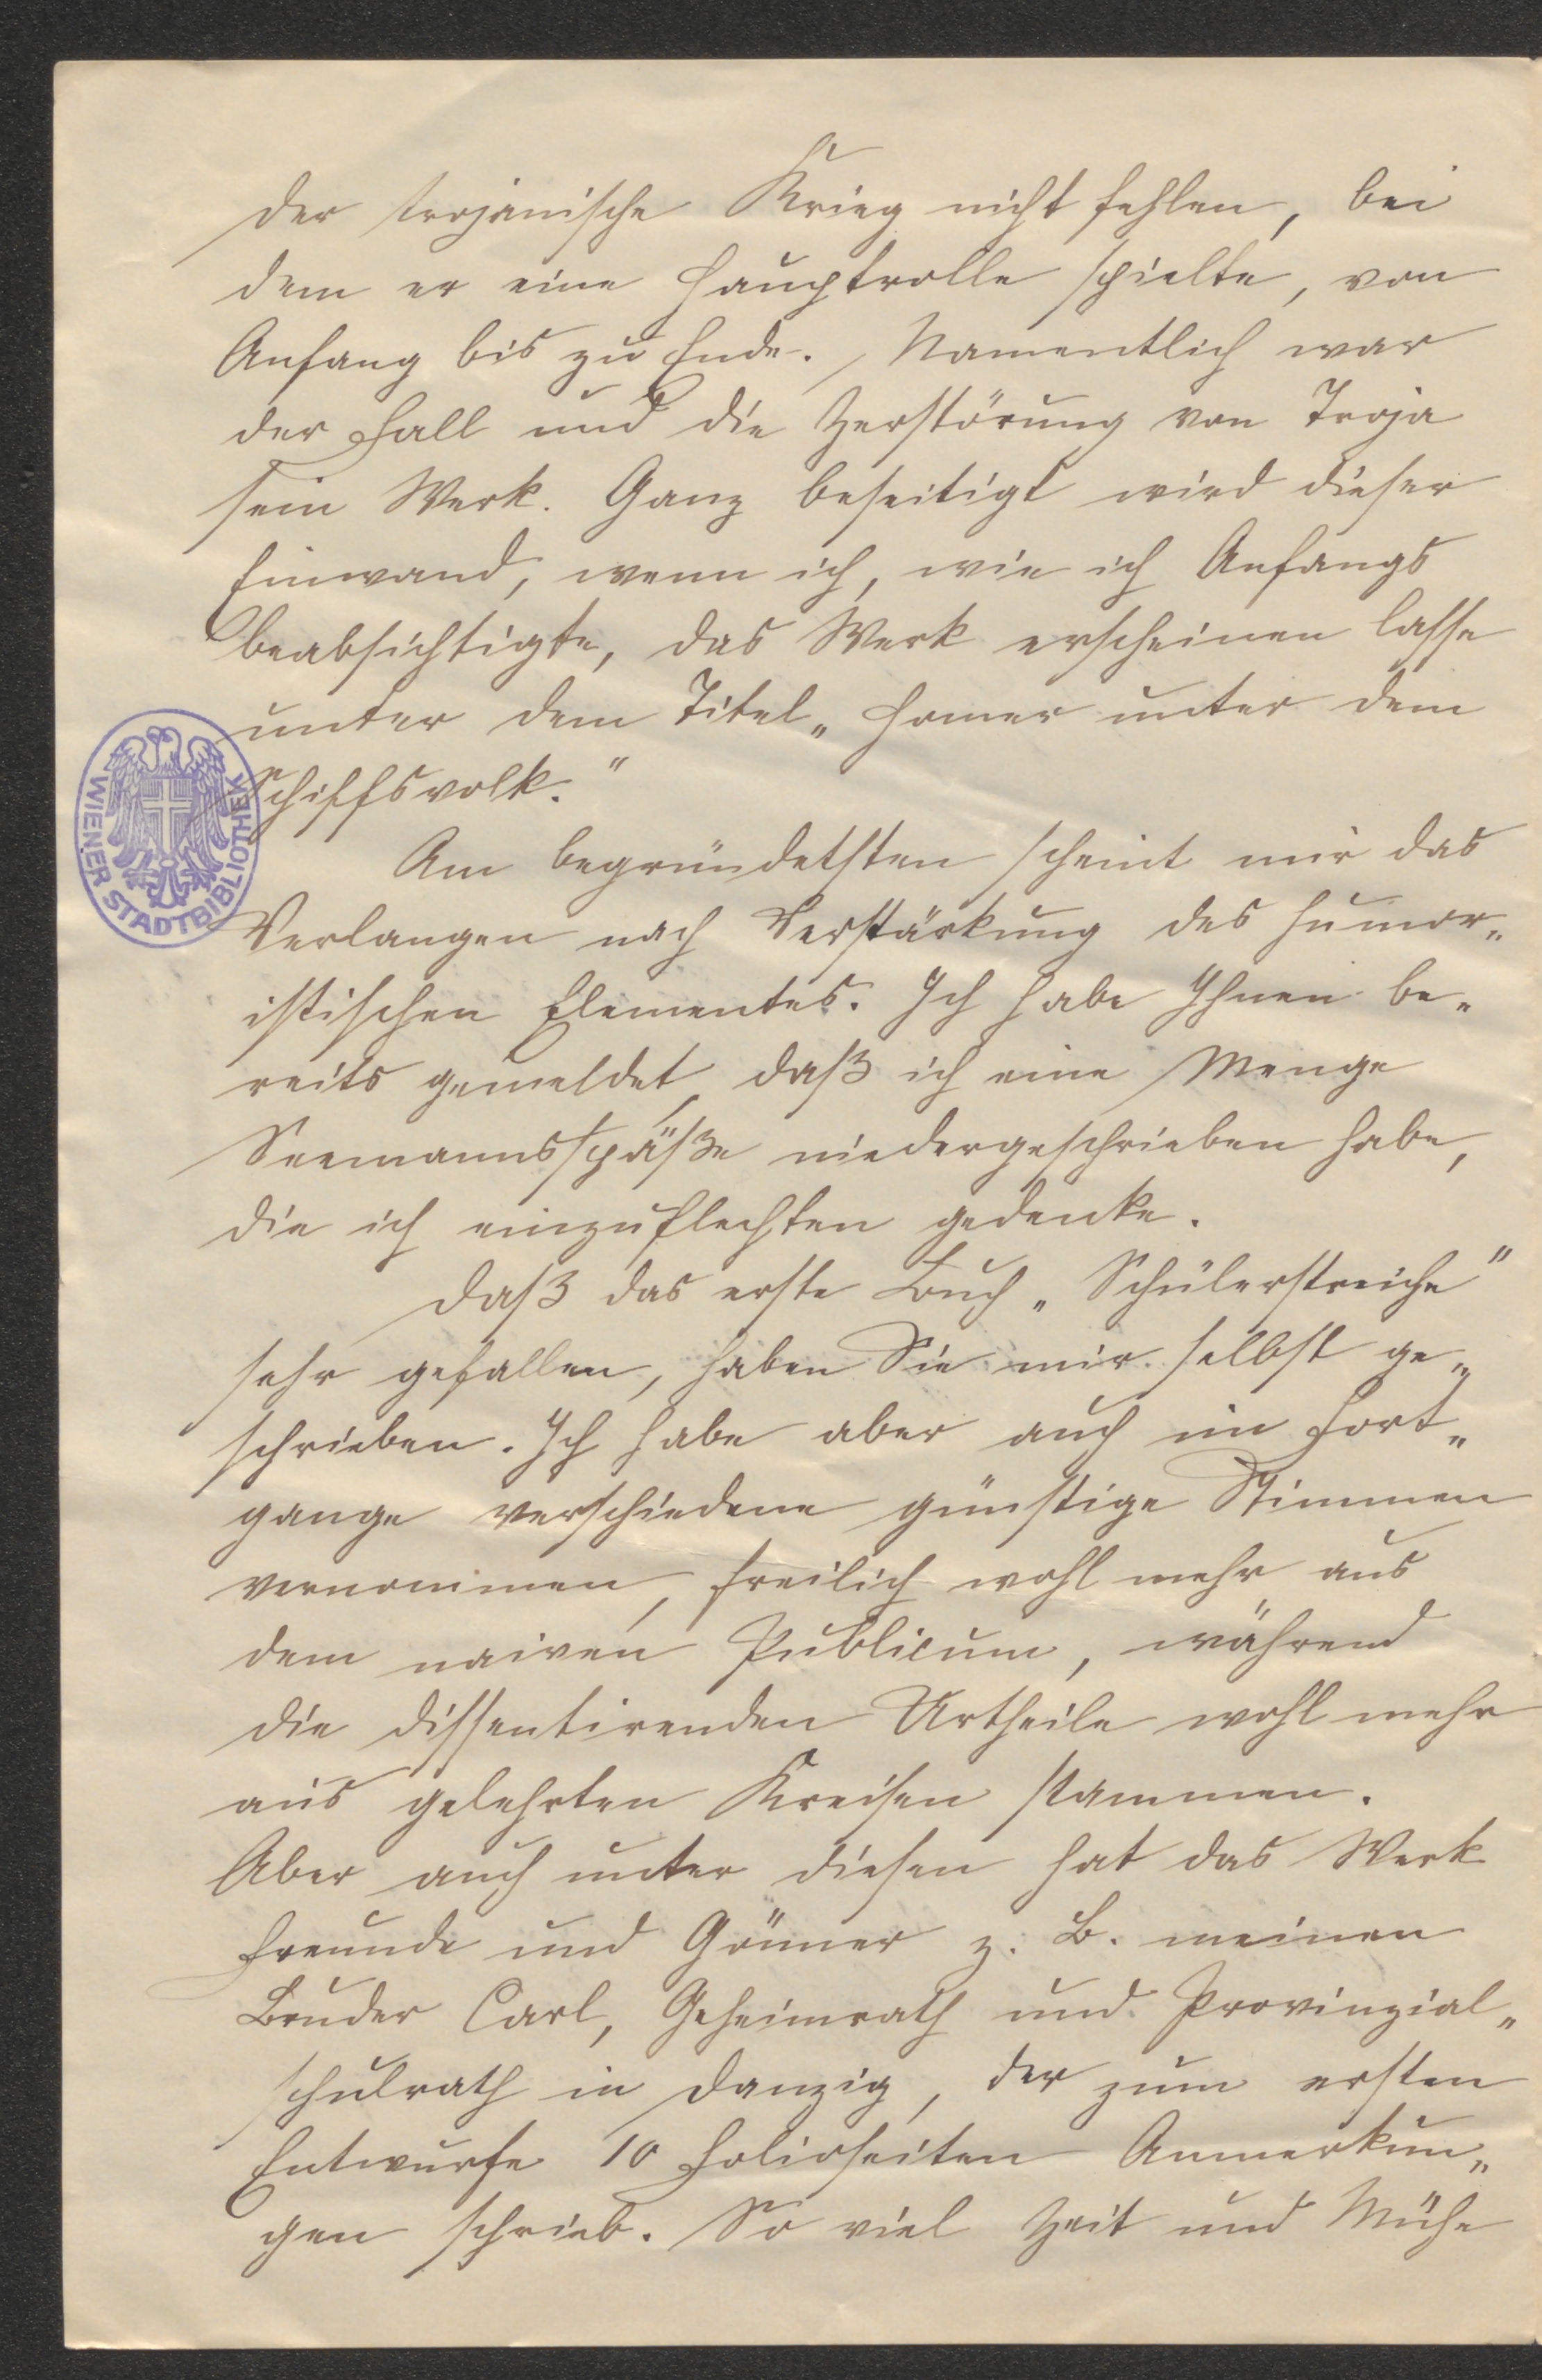 der trojanische Krieg nicht fehlen, bei
dem er eine Hauptrolle spielte, von
Anfang bis zu Ende. Namentlich war
der Fall und die Zerstörung von Troja
sein Werk. Ganz beseitigt wird dieser
Einwand, wenn ich, wie ich Anfangs
beabsichtigte, das Werk erscheinen lasse
unter dem Titel „Homer unter dem
Schiffsvolk."
WIENER STADTBIBLIOTHEK
Am begründetsten scheint mir das
Verlangen nach Verstärkung des humor„
istischen Elementes. Ich habe Ihnen be„
reits gemeldet, daß ich eine Menge
Seemannsspäße niedergeschrieben habe,
die ich einzuflechten gedenke.
Daß das erste Buch „Schülerstreiche"
sehr gefallen, haben Sie mir selbst ge„
schrieben. Ich habe aber auch im Fort„
gange verschiedene günstige Stimmen
vernommen, freilich wohl mehr aus
dem naiven Publicum, während
die dissentirenden Urtheile wohl mehr
aus gelehrten Kreisen stammen.
Aber auch unter diesen hat das Werk
Freunde und Gönner z. B. meinen
Bruder Carl, Geheimrath und Provinzial„
schulrath in Danzig, der zum ersten
Entwurfe 10 Folioseiten Anmerkun„
gen schrieb. So viel Zeit und Mühe